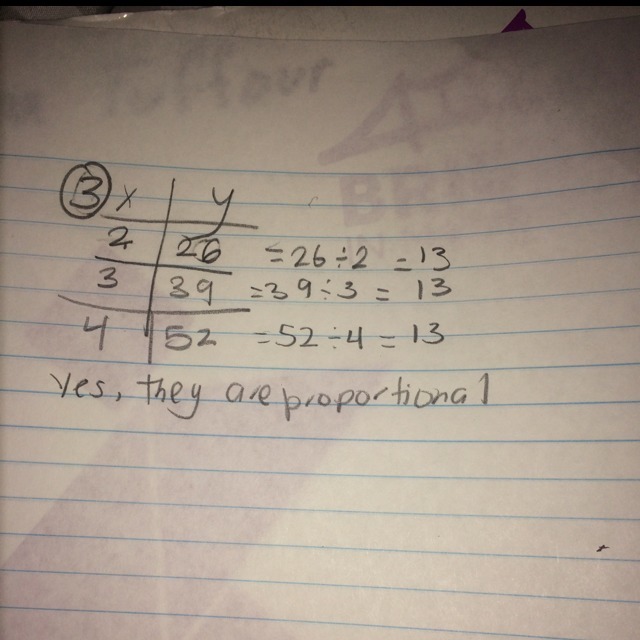 3 x y
2 26 = 26 ÷ 2 = 13
3 39 = 39 ÷ 3 = 13
4 52 = 52 ÷ 4 = 13
Yes, they are proportional